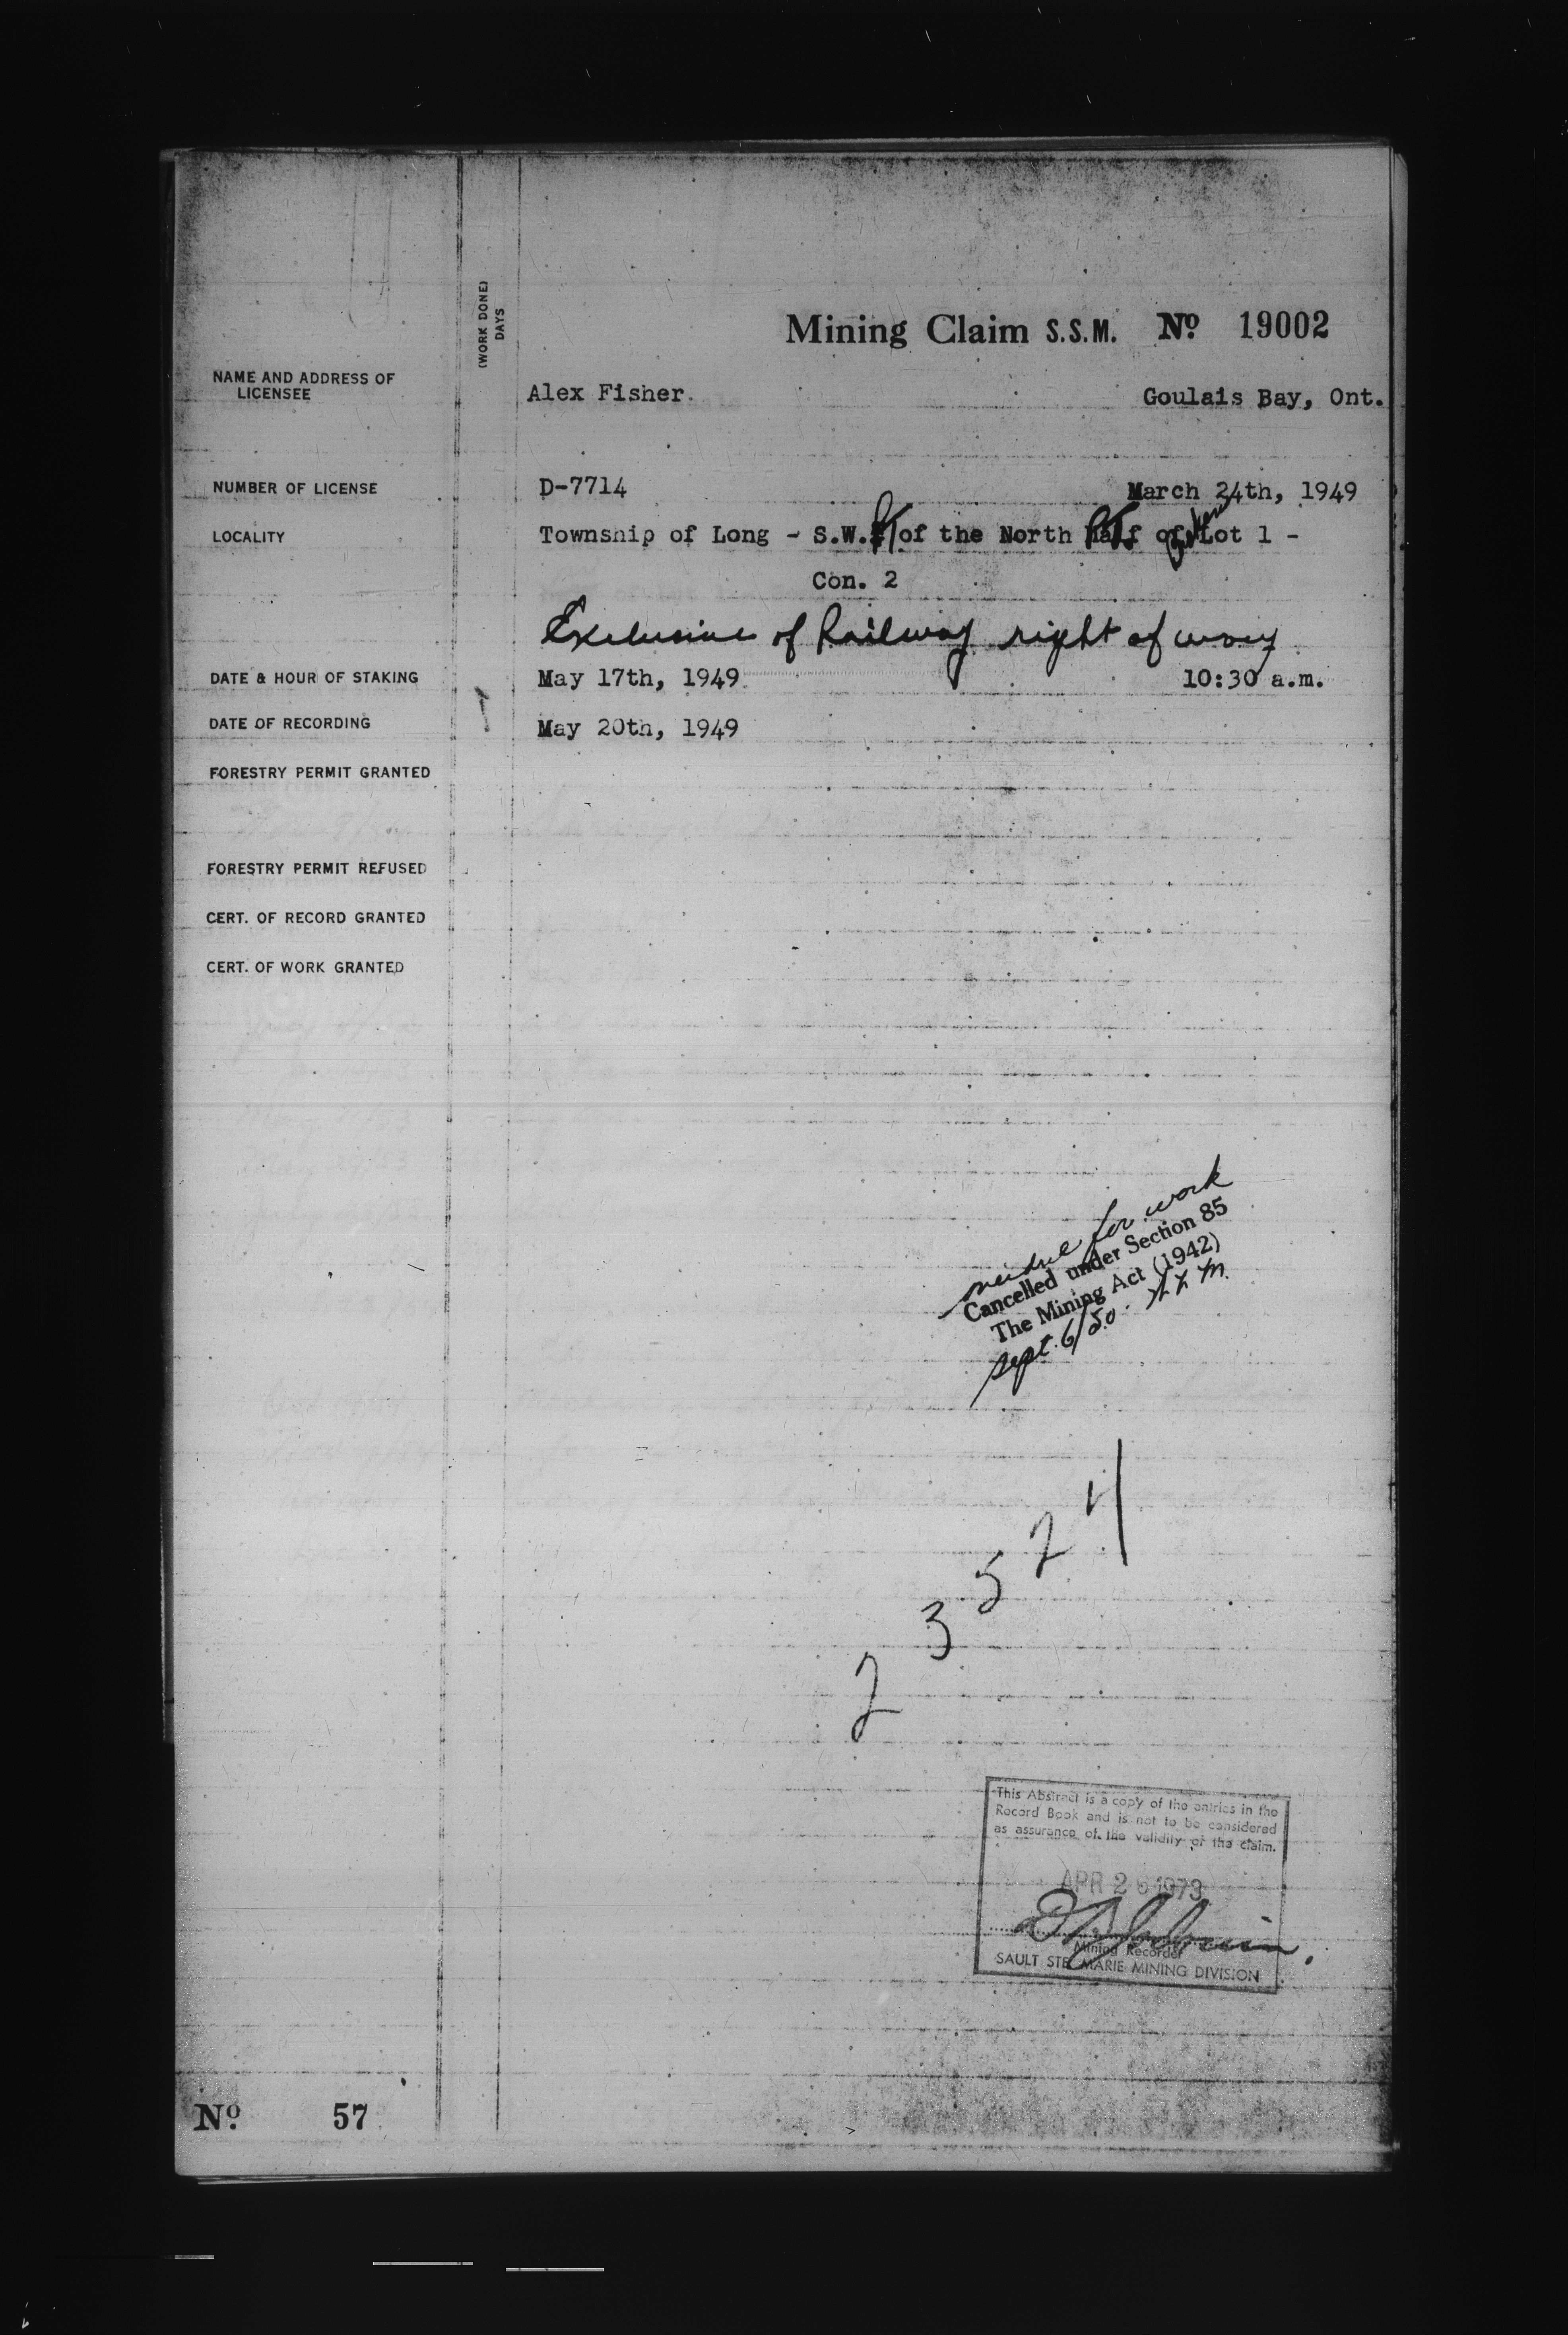 (WORK DONE)
DAYS
Mining Claim S.S.M. No 19002
NAME AND ADDRESS OF
LICENSEE
Alex Fisher. Goulais Bay, Ont.
NUMBER OF LICENSE D-7714 March 24th, 1949
LOCALITY Township of Long - S.W. pt of the North pt. of Lot 1 -
Con. 2
Exclusive of Railway right of way
DATE & HOUR OF STAKING May 17th, 1949 10:30 a.m.
DATE OF RECORDING May 20th, 1949
FORESTRY PERMIT GRANTED
FORESTRY PERMIT REFUSED
CERT. OF RECORD GRANTED
CERT. OF WORK GRANTED
overdue for work
Cancelled under Section 85
The Mining Act (1942)
Sept. 6/50.
23524
This Abstract is a copy of the entries in the
Record Book and is not to be considered
as assurance of the validity of the claim.
APR 26 1973
Mining Recorder
SAULT STE. MARIE MINING DIVISION
No 57